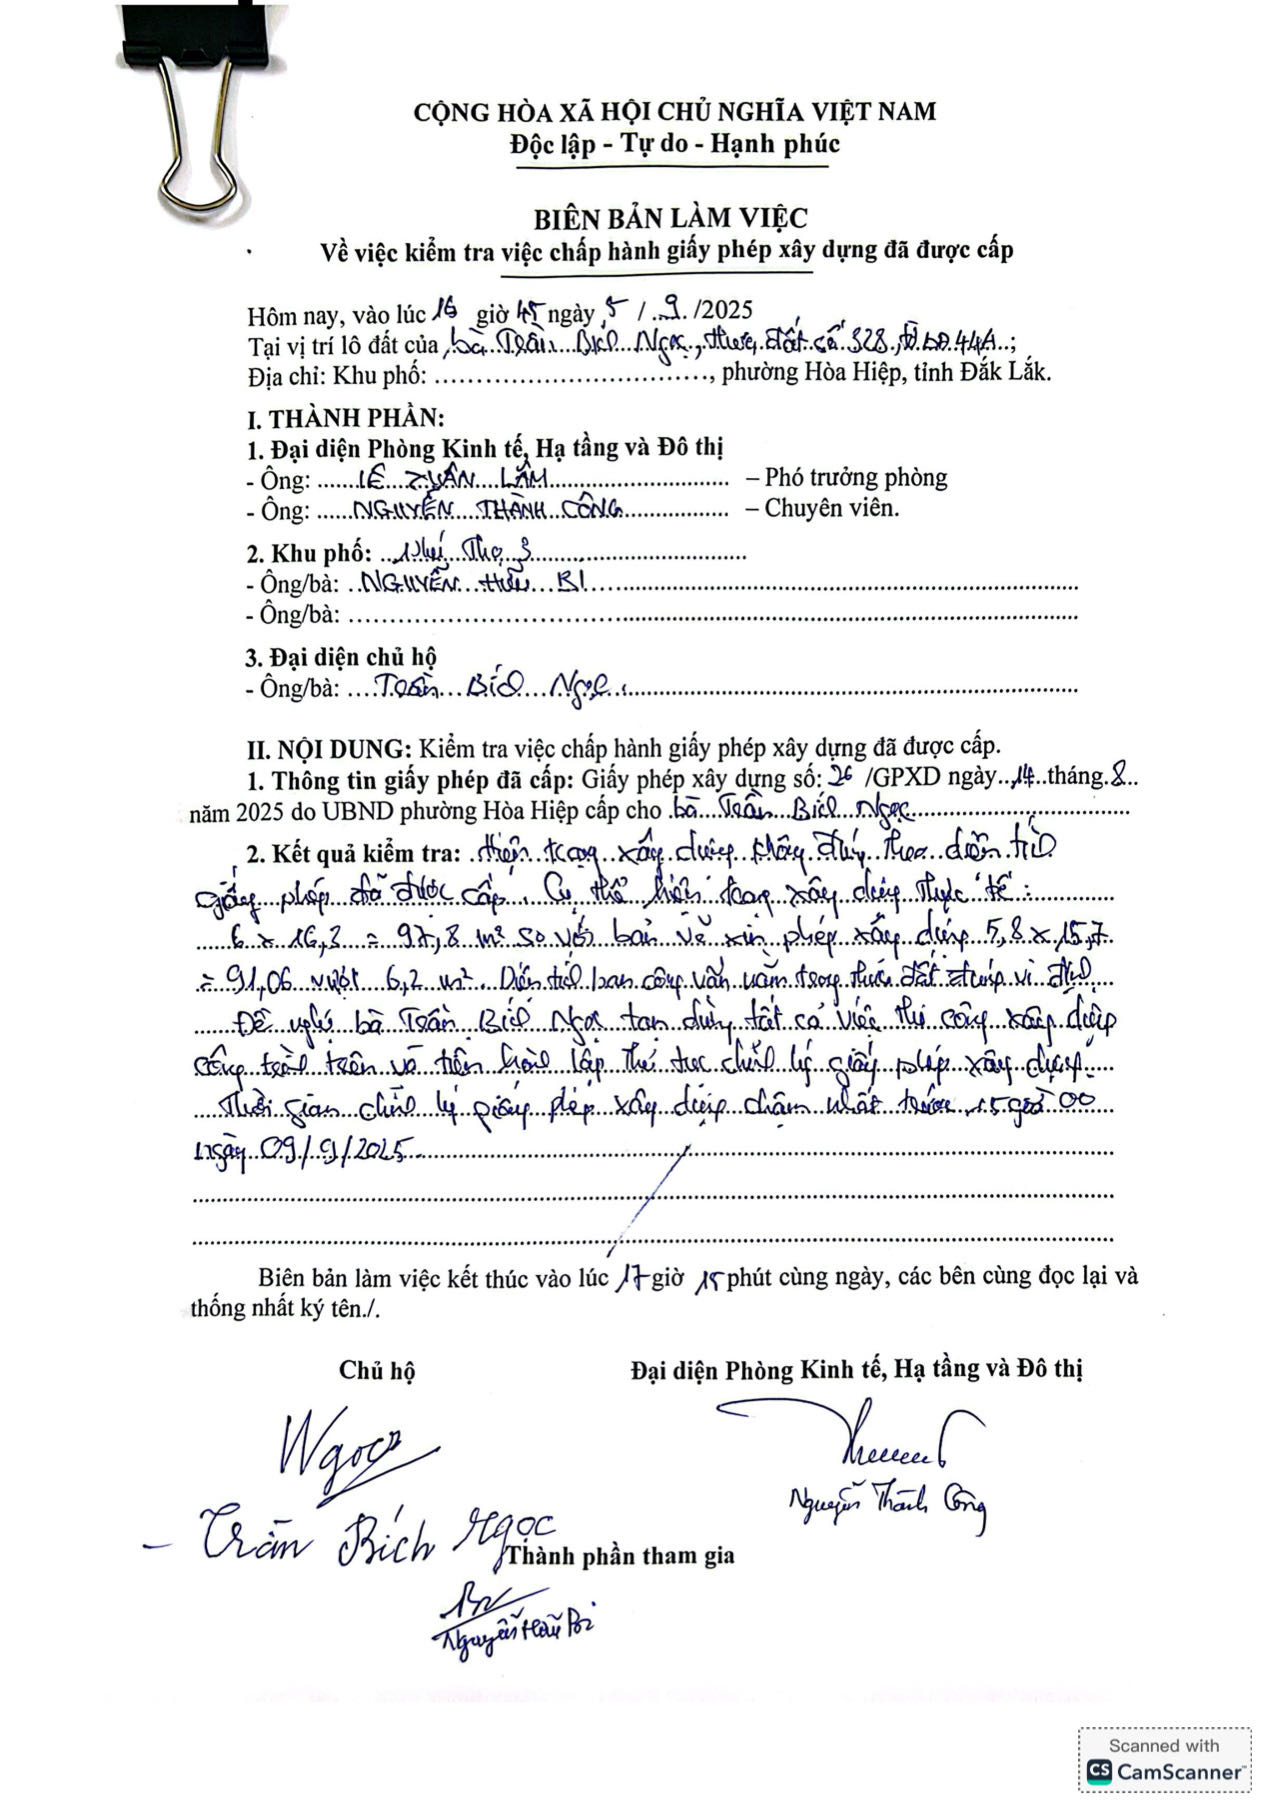 CỘNG HÒA XÃ HỘI CHỦ NGHĨA VIỆT NAM
Độc lập - Tự do - Hạnh phúc
BIÊN BẢN LÀM VIỆC
Về việc kiểm tra việc chấp hành giấy phép xây dựng đã được cấp
Hôm nay, vào lúc 16 giờ 45 ngày 5 / 9 /2025
Tại vị trí lô đất của bà Trần Bích Ngọc, thửa đất số 328, TBĐ 44A ;
Địa chỉ: Khu phố: ..............................., phường Hòa Hiệp, tỉnh Đắk Lắk.
I. THÀNH PHẦN:
1. Đại diện Phòng Kinh tế, Hạ tầng và Đô thị
- Ông: LÊ XUÂN LÃM – Phó trưởng phòng
- Ông: NGUYỄN THÀNH CÔNG – Chuyên viên.
2. Khu phố: Phú Thọ 3
- Ông/bà: NGUYỄN HỮU BI
- Ông/bà:
3. Đại diện chủ hộ
- Ông/bà: Trần Bích Ngọc
II. NỘI DUNG: Kiểm tra việc chấp hành giấy phép xây dựng đã được cấp.
1. Thông tin giấy phép đã cấp: Giấy phép xây dựng số: 26 /GPXD ngày 14 tháng 8
năm 2025 do UBND phường Hòa Hiệp cấp cho bà Trần Bích Ngọc
2. Kết quả kiểm tra: Hiện trạng xây dựng không đúng theo diện tích
giấy phép đã được cấp. Cụ thể hiện trạng xây dựng thực tế:
6 x 16,3 = 97,8 m² so với bản vẽ xin phép xây dựng 5,8 x 15,7
= 91,06 vượt 6,2 m². Diện tích ban công vẫn nằm trong thửa đất đúng vị trí
Đề nghị bà Trần Bích Ngọc tạm dừng tất cả việc thi công xây dựng
công trình trên và tiến hành lập thủ tục chỉnh lý giấy phép xây dựng.
Thời gian chỉnh lý giấy phép xây dựng chậm nhất trước 15 giờ 00
ngày 09/9/2025.
Biên bản làm việc kết thúc vào lúc 17 giờ 15 phút cùng ngày, các bên cùng đọc lại và
thống nhất ký tên./.
Chủ hộ Đại diện Phòng Kinh tế, Hạ tầng và Đô thị
Ngọc
Nguyễn Thành Công
- Trần Bích Ngọc
Thành phần tham gia
Nguyễn Hữu Bi
Scanned with
CS CamScanner